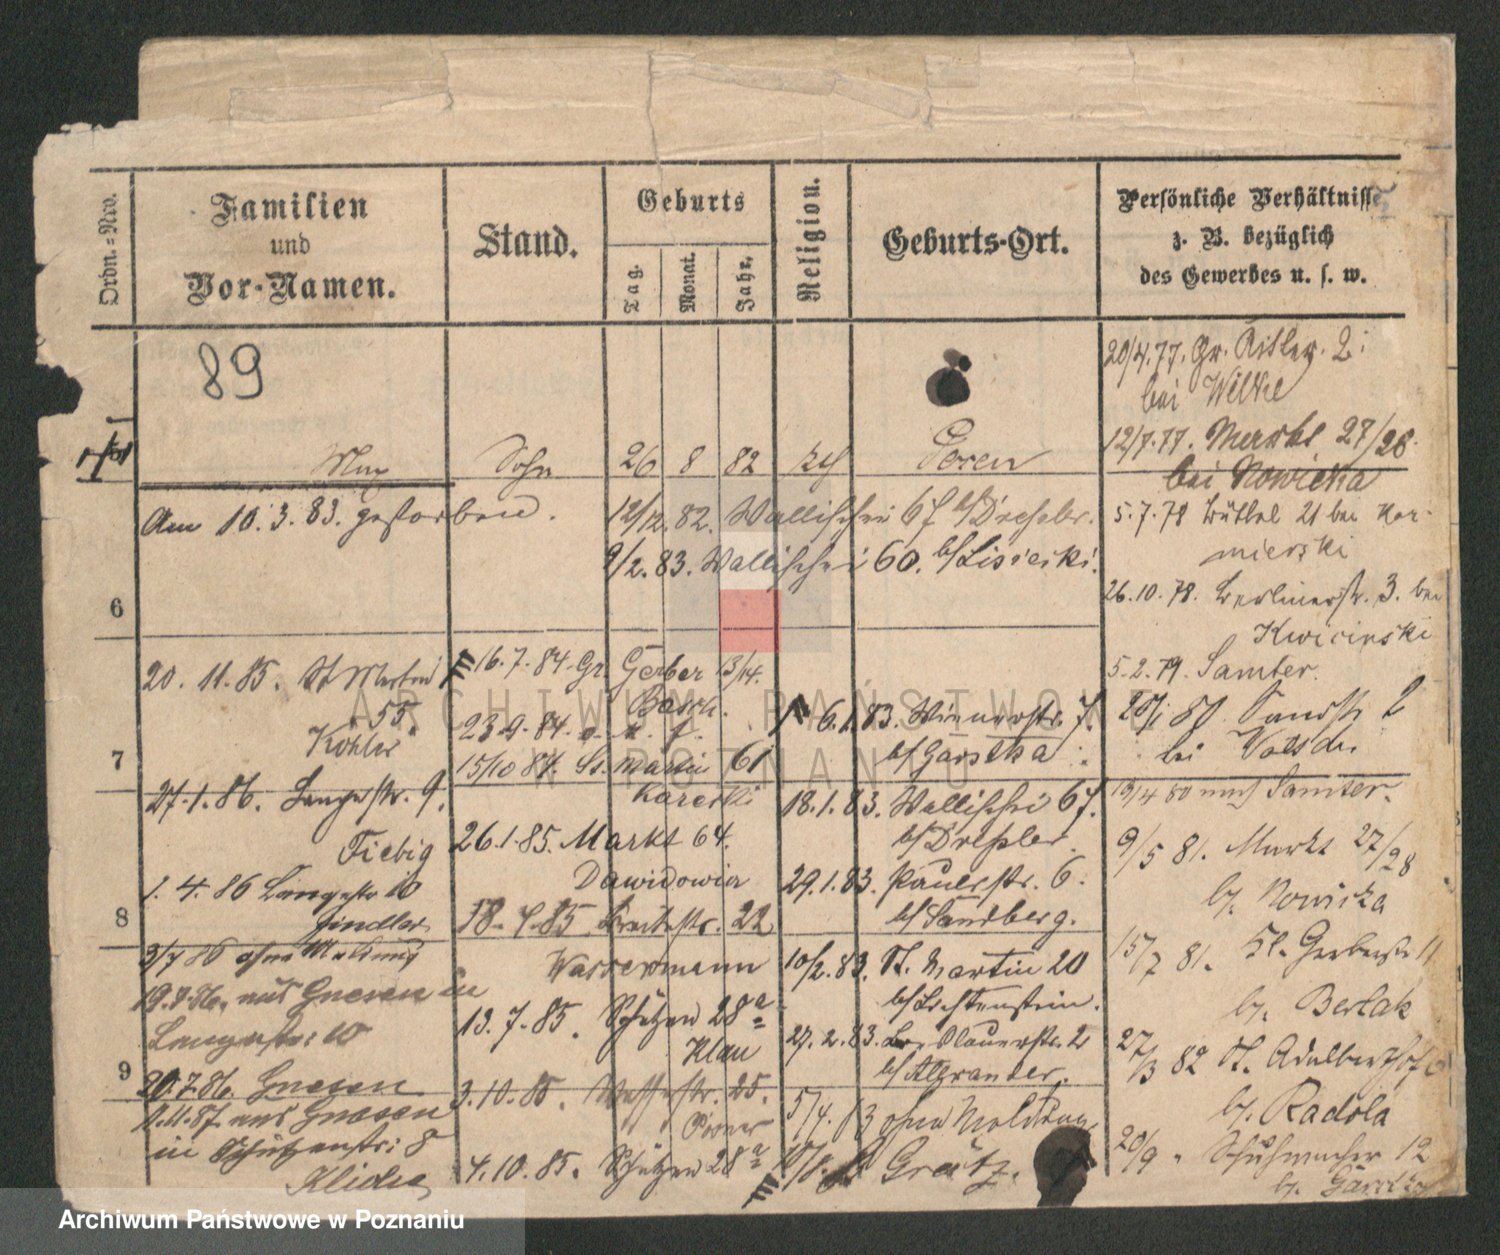 Ordn.=Nro.
Familien
und
Vor-Namen.
Stand.
Geburts
Tag.
Monat.
Jahr.
Religion.
Geburts-Ort.
Persönliche Verhältnisse
z. B. bezüglich
des Gewerbes u. s. w.
89
Max Sohn 26 8 82 Posen
Am 10.3.83. gestorben.
12/12. 82. Wallischei 67 b/Dresler.
9/2. 83. Wallischei 60. b/Lisiecki.
6
7
8
9
20. 11. 85. St Martin
55
Köhler
27.1.86. Langestr. 9.
Fiebig
1. 4. 86 Langestr 10
Jindler
3/7 86 ohne Meldung
19.7.86. aus Gnesen in
Langestr: 10
20.7.86. Gnesen
9.11.87. aus Gnesen
in Schützenstr: 8
16.7.84. Gr. Gerber 13/14.
Basch.
23.9.84. o. M. f.
15/10 84. St. Martin 61
Karecki
26.1.85. Markt 64.
Dawidowicz
18.4.85. Breitestr. 22
Wassermann
13.7.85. Schützen 28a
Klau
3.10.85. 25.
4.10.85. Schützen 28a
6.1.83. Wienerstr. 7.
b/Garstka
18.1.83. Wallischei 67.
b/Dresler.
29.1.83. Paulistr. 6.
b/Sandberg.
10/2.83. St. Martin 20
b/Lichtenstein.
27.2.83. Breslauerstr. 2
b/Algranter.
5/4. 83 ohne Meldung
Grätz.
20/4.77. Gr. Ritter. 2:
bei Wilke
12/7.77. Markt 27/28.
bei Nowicka
5.7.78 Büttel 21 bei Kaz-
mierski
26.10.78. Berlinerstr. 3. bei
Kwicinski
5.2.79. Samter.
80. Sandstr 2
bei
19/4 80 nach Samter.
9/5 81. Markt 27/28
b/. Nowicka
15/7 81. Kl. Gerberstr 11
b/. Berlak
27/3 82 St. Adalbertstr
b/. Radola
20/9 " Schuhmacher 12
b/. Garstka
ARCHIWUM PAŃSTWOWE
W POZNANIU
Archiwum Państwowe w Poznaniu